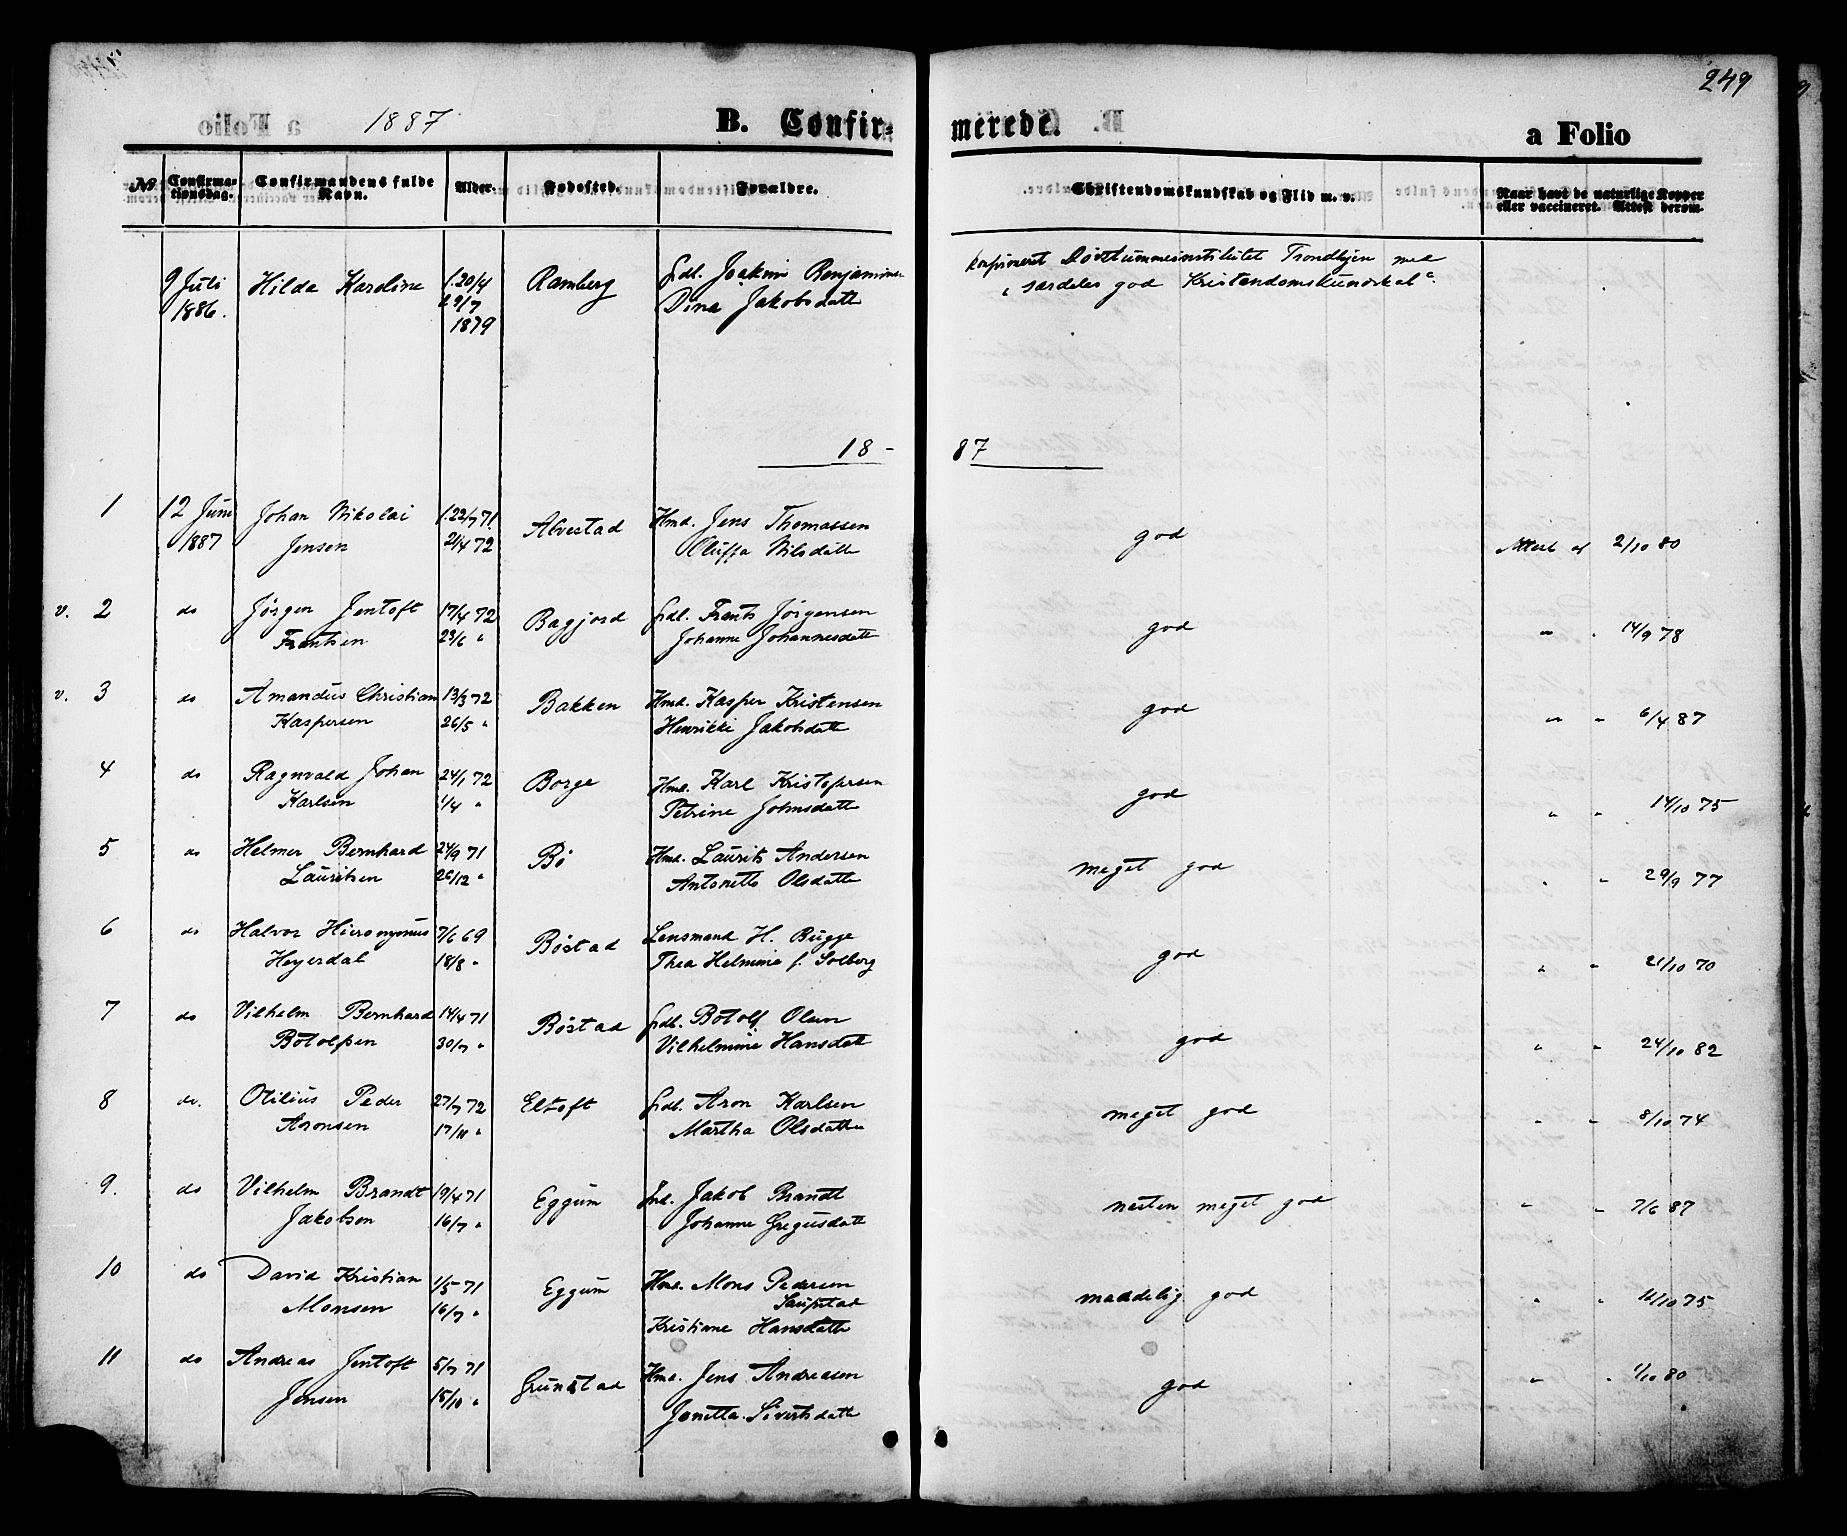 249
1887 B. Confir- merede. a Folio
No Confirma-tionsdag. Confirmandens fulde Navn. Alder. Fødested. Forældre. Christendomskundskab og Flid m. v. Naar havt de naturlige Kopper eller vaccineret. Attest derom.
9 Juli Hilda Karoline f. 20/4 Ramberg Gdb. Joakim Benjaminsen Døvstummeinstitutet Trondhjem med
1886. 29/7 Dina Jakobsdatter "særdeles god Kristendomskundskab".
1879
18 - 87
1 12 Juni Johan Nikolai f. 22/7 71 Alvestad Hmd. Jens Thomassen god Attest af 2/10 80
1887 Jensen 21/4 72 Oluffa Nilsdatter
v. 2 do Jørgen Jentoft 17/4 72 Bagjord Gdb. Frants Jørgensen god " " 14/9 78
Frantsen 23/6 " Johanne Johannesdatter
v. 3 do Amandus Christian 13/3 72 Bakken Hmd. Kasper Kristensen god " " 6/4 87
Kaspersen 26/5 " Henrikke Jakobsdatter
4 do Ragnvald Johan 24/1 72 Borge Hmd. Karl Kristofersen god " " 14/10 75
Karlsen 1/4 " Petrine Johnsdatter
5 do Helmer Bernhard 24/9 71 Bø Hmd. Laurits Andersen meget god " " 29/9 77
Lauritsen 26/12 " Antonette Olsdatter
6 do Halvor Hieronymus 7/6 69 Bøstad Lensmand H. Bugge god " " 21/10 70
Heyerdal 18/8 " Thea Helmine f. Solberg
7 do Vilhelm Bernhard 14/4 71 Bøstad Gdb. Botolf Olsen god " " 24/10 82
Botolfsen 30/7 " Vilhelmine Hansdatter
8 do. Otilius Peder 27/7 72 Eltoft Gdb. Aron Karlsen meget god " " 8/10 74
Aronsen 17/11 " Martha Olsdatter
9. do Vilhelm Brandt 19/4 71 Eggum Jakob Brandt næsten meget god " " 7/6 87
Jakobsen 16/7 " Johanne Gregusdatter
10 do David Kristian 1/5 71 Eggum Hmd. Mons Pedersen maadelig god " " 10 75
Monsen 16/7 " Saupstad
Kristiane Hansdatter
11 do Andreas Jentoft 5/7 71 Grunstad Hmd. Jens Andreasen god " " 1/10 80
Jensen 15/10 " Jonetta Sivertsdatter